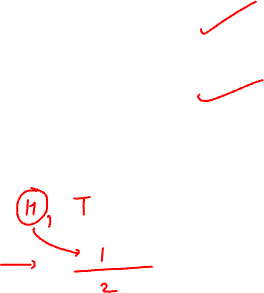 H, T
→ 1/2